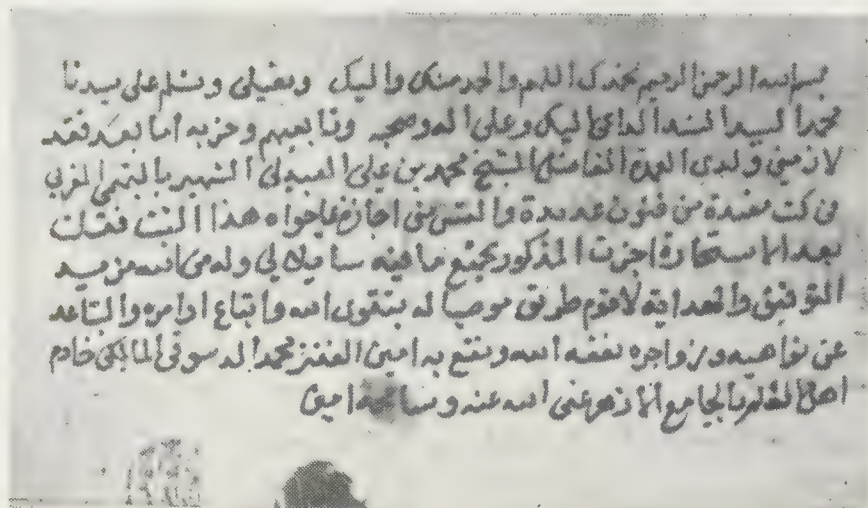 بسم الله الرحمن الرحيم نحمدك اللهم والحمد منك واليك ونصلي ونسلم على سيدنا
محمد السيد السند الداعي اليك وعلى اله وصحبه وتابعيهم وحزبه اما بعد فقد
لازمني ولدي الفاضل الشيخ محمد بن علي الشهير بالتميمي المغربي
في كتب عديدة من فنون عديدة والتمس مني اجازة بما حواه هذا الثبت فقلت
بعد الاستخارة اجزت المذكور بجميع ما فيه سايلا لي وله من الله مزيد
التوفيق والهداية لاقوم طريق موصيا له بتقوى الله واتباع اوامره والتباعد
عن نواهيه وزواجره نفعه الله ونفع به امين الفقير محمد الدسوقي المالكي خادم
اهل العلم بالجامع الازهر عفى الله عنه وسامحه امين